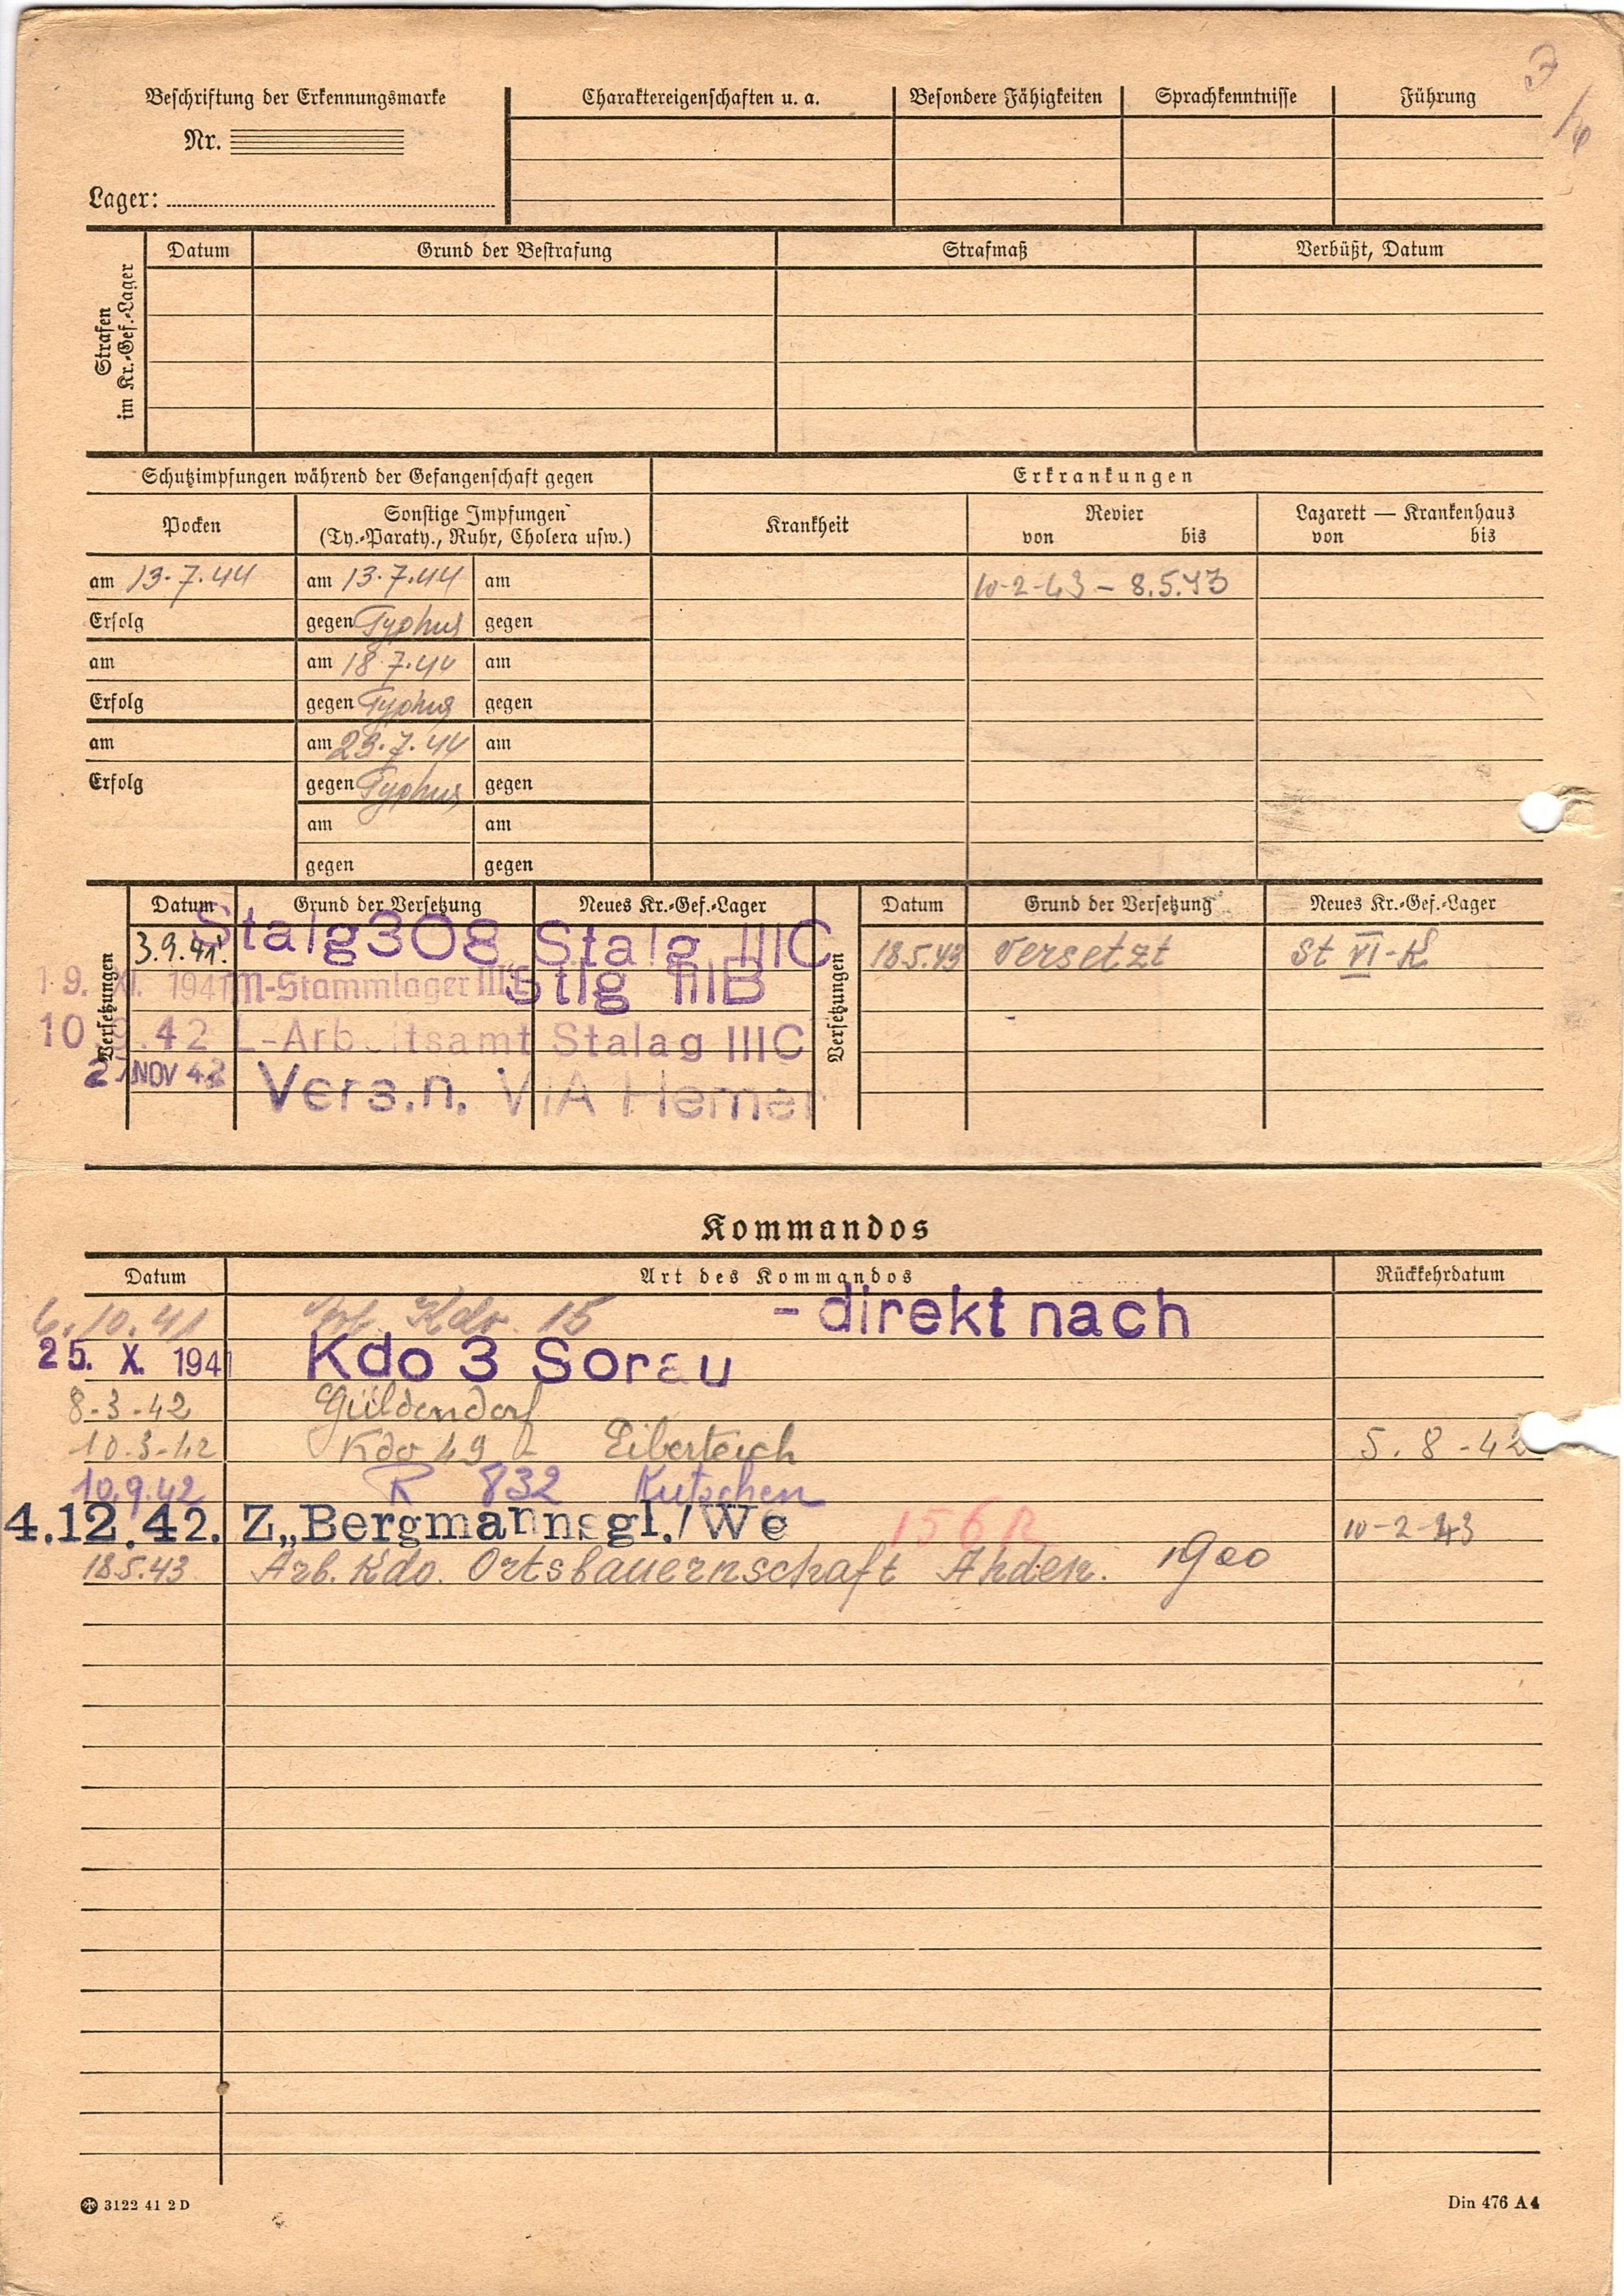 Beschriftung der Erkennungsmarke
Nr.
Lager:
Charaktereigenschaften u. a.
Besondere Fähigkeiten
Sprachkenntnisse
Führung
Strafen im Kr.-Gef.-Lager
Datum
Grund der Bestrafung
Strafmaß
Verbüßt, Datum
Schutzimpfungen während der Gefangenschaft gegen
Erkrankungen
Pocken
Sonstige Impfungen
(Ty.-Paraty., Ruhr, Cholera usw.)
Krankheit
Revier
von bis
Lazarett — Krankenhaus
von bis
am 13.7.44 am 13.7.44 am 10-2-43 – 8.5.43
Erfolg gegen Typhus gegen
am am 18.7.44 am
Erfolg gegen Typhus gegen
am am 23.7.44 am
Erfolg gegen Typhus gegen
am am
gegen gegen
Versetzungen
Datum Grund der Versetzung Neues Kr.-Gef.-Lager
3.9.41. Stalg 308 Stalg IIIC
19. XI. 1941 M-Stammlager Stlg IIIB
.42 L-Arbeitsamt Stalag IIIC
NOV 42 Vers.n. VIA Hemer
Versetzungen
Datum Grund der Versetzung Neues Kr.-Gef.-Lager
18.5.43 Versetzt St VI-K
Kommandos
Datum Art des Kommandos Rückkehrdatum
6.10.41 Kdo. 15 - direkt nach
25. X. 1941 Kdo 3 Sorau
8-3-42 Güldendorf
10-3-42 Kdo 49 Eiberteich 5.8-42
10.9.42 R 832 Kutschen
4.12.42. Z„Bergmannsgl./We 156 R 10-2-43
18.5.43 Arb. Kdo. Ortsbauernschaft Ahden. 1900
3122 41 2 D
Din 476 A 4